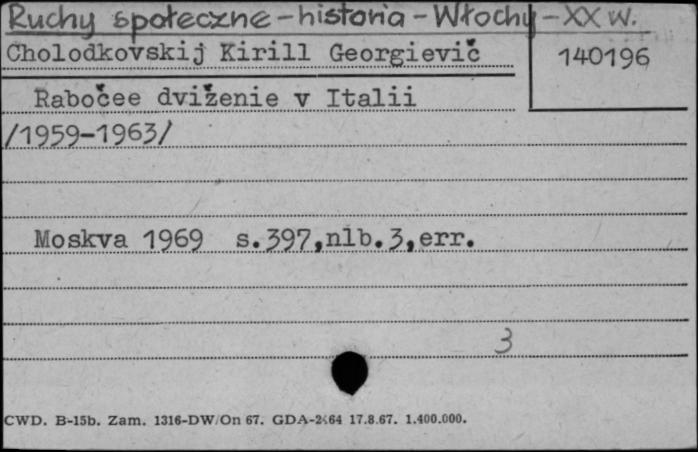 Ruchy społeczne - historia - Włochy - XX w.
Cholodkovskij Kirill Georgievič
140196
Rabočee dviženie v Italii
/1959-1963/
Moskva 1969 s.397,nlb.3,err.
3
CWD. B-15b. Zam. 1316-DW/On 67. GDA-2464 17.8.67. 1.400.000.